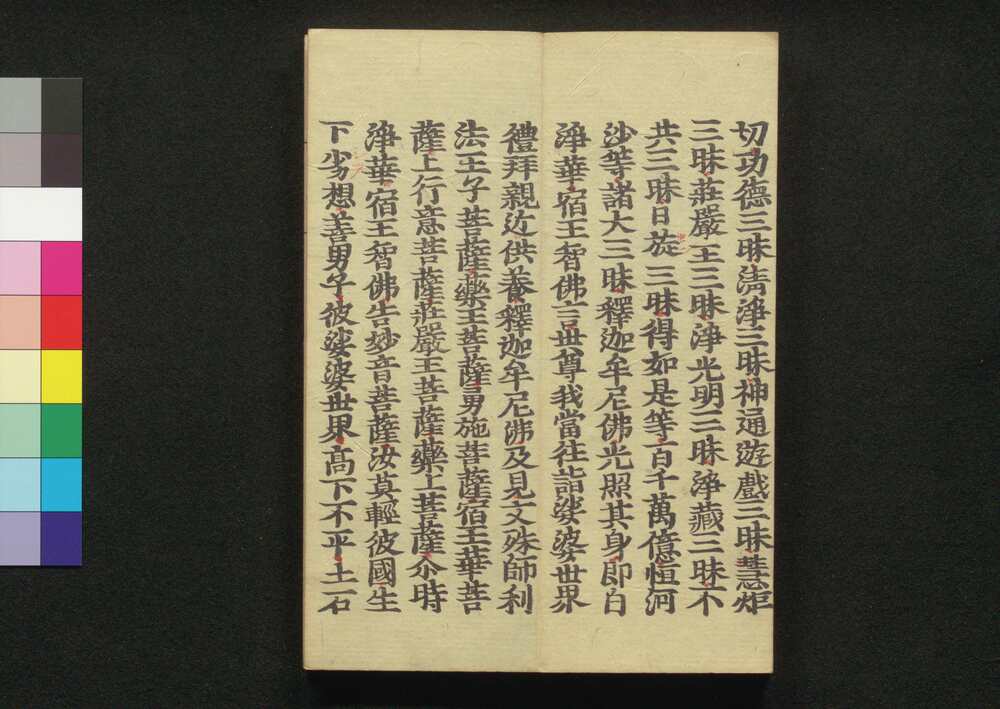 切功德三昧清淨三昧神通遊戲三昧慧炬
三昧莊嚴王三昧淨光明三昧淨藏三昧不
共三昧日旋三昧得如是等百千萬億恒河
沙等諸大三昧釋迦牟尼佛光照其身即白
淨華宿王智佛言世尊我當往詣娑婆世界
禮拜親近供養釋迦牟尼佛及見文殊師利
法王子菩薩藥王菩薩勇施菩薩宿王華菩
薩上行意菩薩莊嚴王菩薩藥上菩薩尒時
淨華宿王智佛告妙音菩薩汝莫輕彼國生
下劣想善男子彼娑婆世界高下不平土石